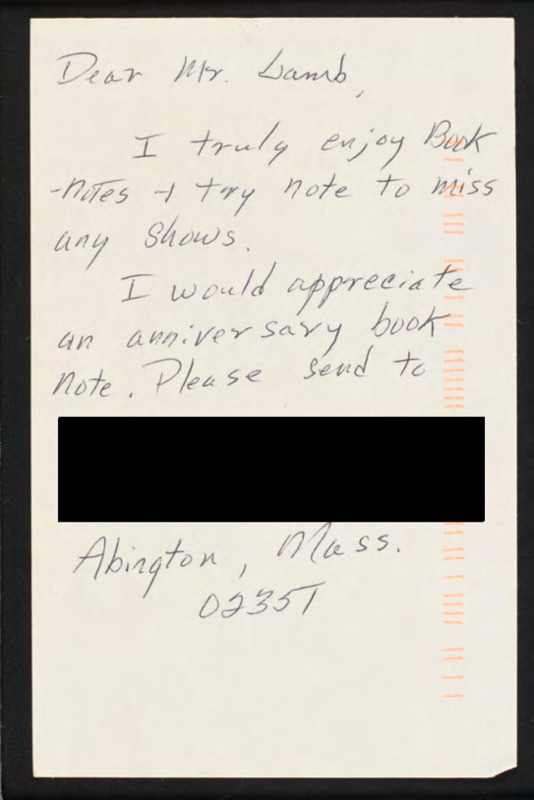 Dear Mr. Lamb,
I truly enjoy Book
-notes + try note to miss
any shows.
I would appreciate
an anniversary book
note. Please send to
Abington, Mass.
02351